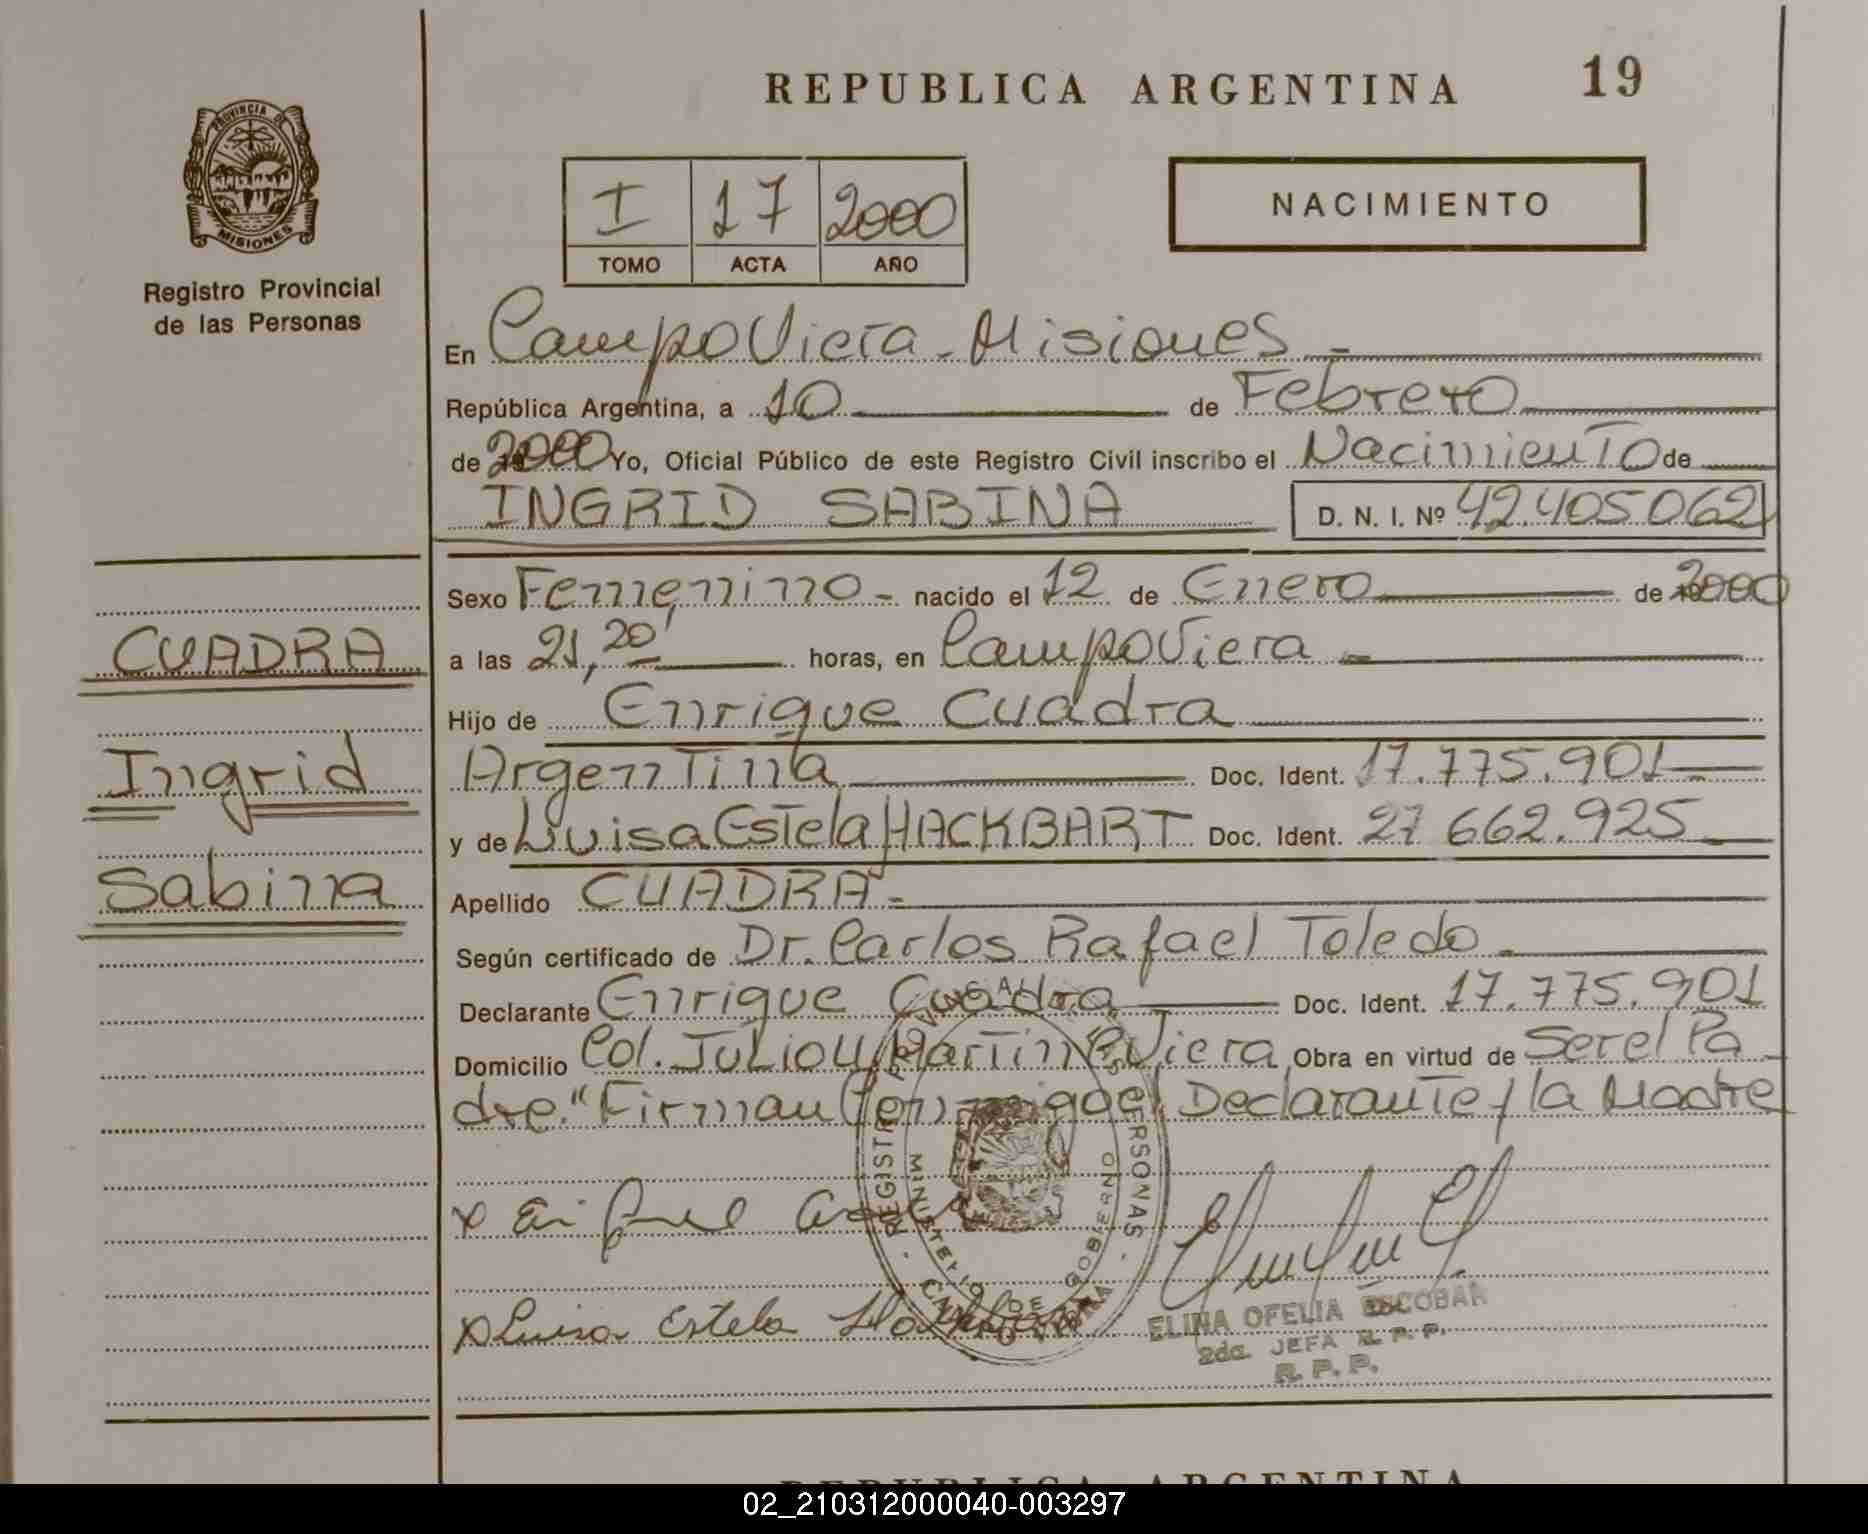 REPUBLICA ARGENTINA 19
PROVINCIA DE
MISIONES
Registro Provincial
de las Personas
I 17 2000
TOMO ACTA AÑO
NACIMIENTO
En Campo Viera - Misiones -
República Argentina, a 10 de Febrero
de 2000 Yo, Oficial Público de este Registro Civil inscribo el Nacimiento de
INGRID SABINA D. N. I. Nº 42.405062
Sexo Femenino - nacido el 12 de Enero de 2000
CUADRA
a las 21,20' horas, en Campo Viera
Hijo de Enrique Cuadra
Ingrid
Argentina Doc. Ident. 17.775.901
y de Luisa Estela HACKBART Doc. Ident. 27 662.925
Sabina
Apellido CUADRA -
Según certificado de Dr. Carlos Rafael Toledo
Declarante Enrique Cuadra Doc. Ident. 17.775.901
Domicilio Col. Julio U. Martin C. Viera Obra en virtud de Ser el Pa-
dre." Firman Conmigo el Declarante y la Madre
REGISTRO PROVINCIAL DE LAS PERSONAS
MINISTERIO DE GOBIERNO
CAMPO VIERA
x Luisa Estela
ELINA OFELIA ESCOBAR
2da. JEFA R. P. P.
R. P. P.
REPUBLICA ARGENTINA
02_210312000040-003297